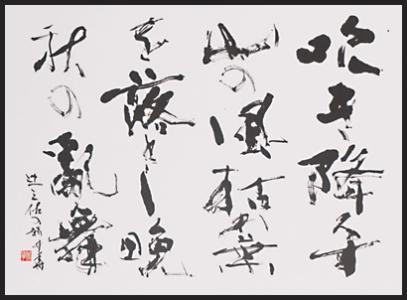 吹き降す
山の風枯れ葉
を落とし晩
秋の亂舞